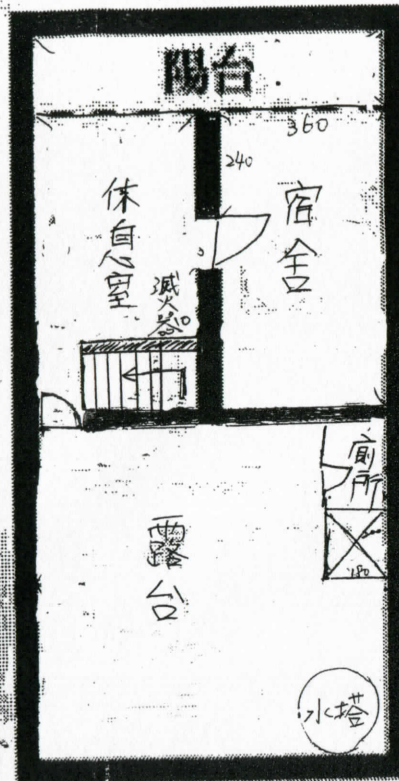 陽台
360
240
休息室
宿舍
滅火器
廁所
180
露台
水塔